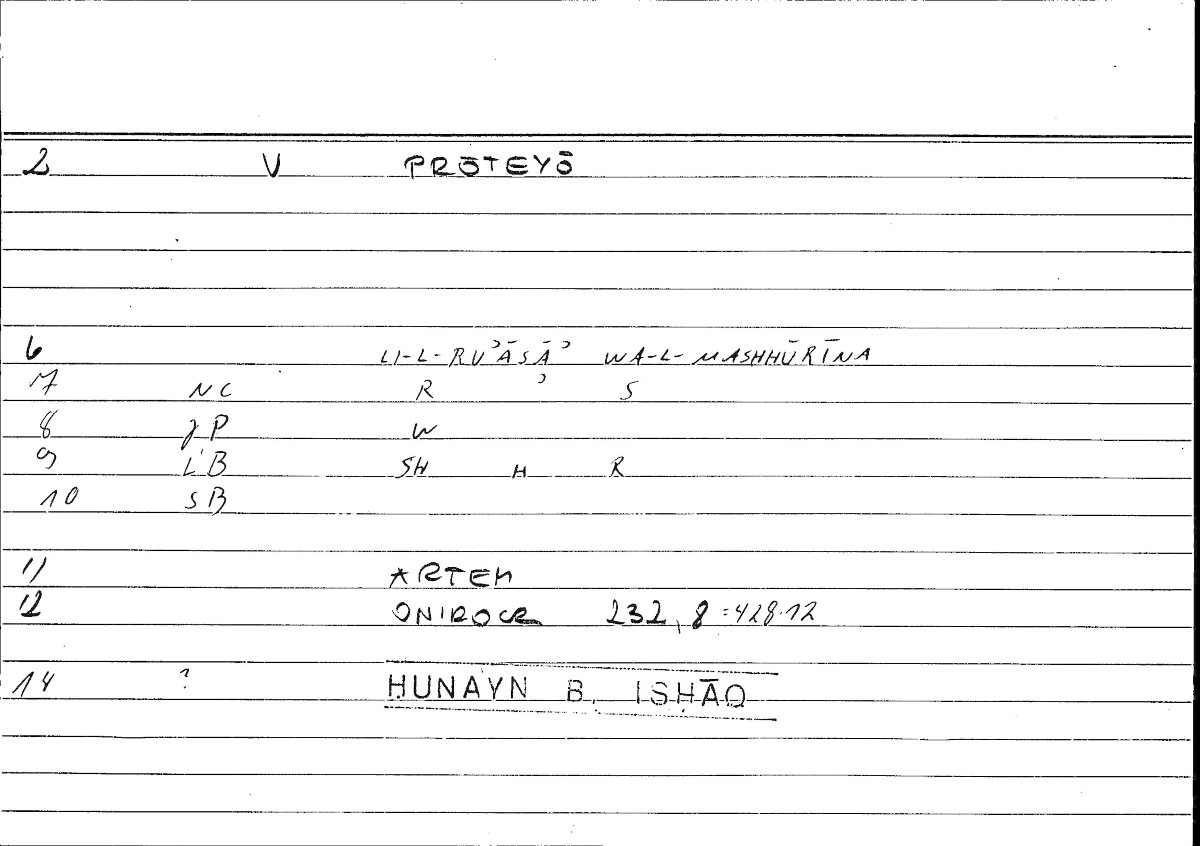 2 V PRŌTEYŌ
6 LI-L-RUʾĀSĀʾ WA-L-MASHHŪRĪNA
7 NC R ʾ S
8 JP W
9 L'B SH H R
10 SB
11 ARTEM
12 ONIROCR 232,8=428.12
14 ? ḤUNAYN B. ISḤĀQ